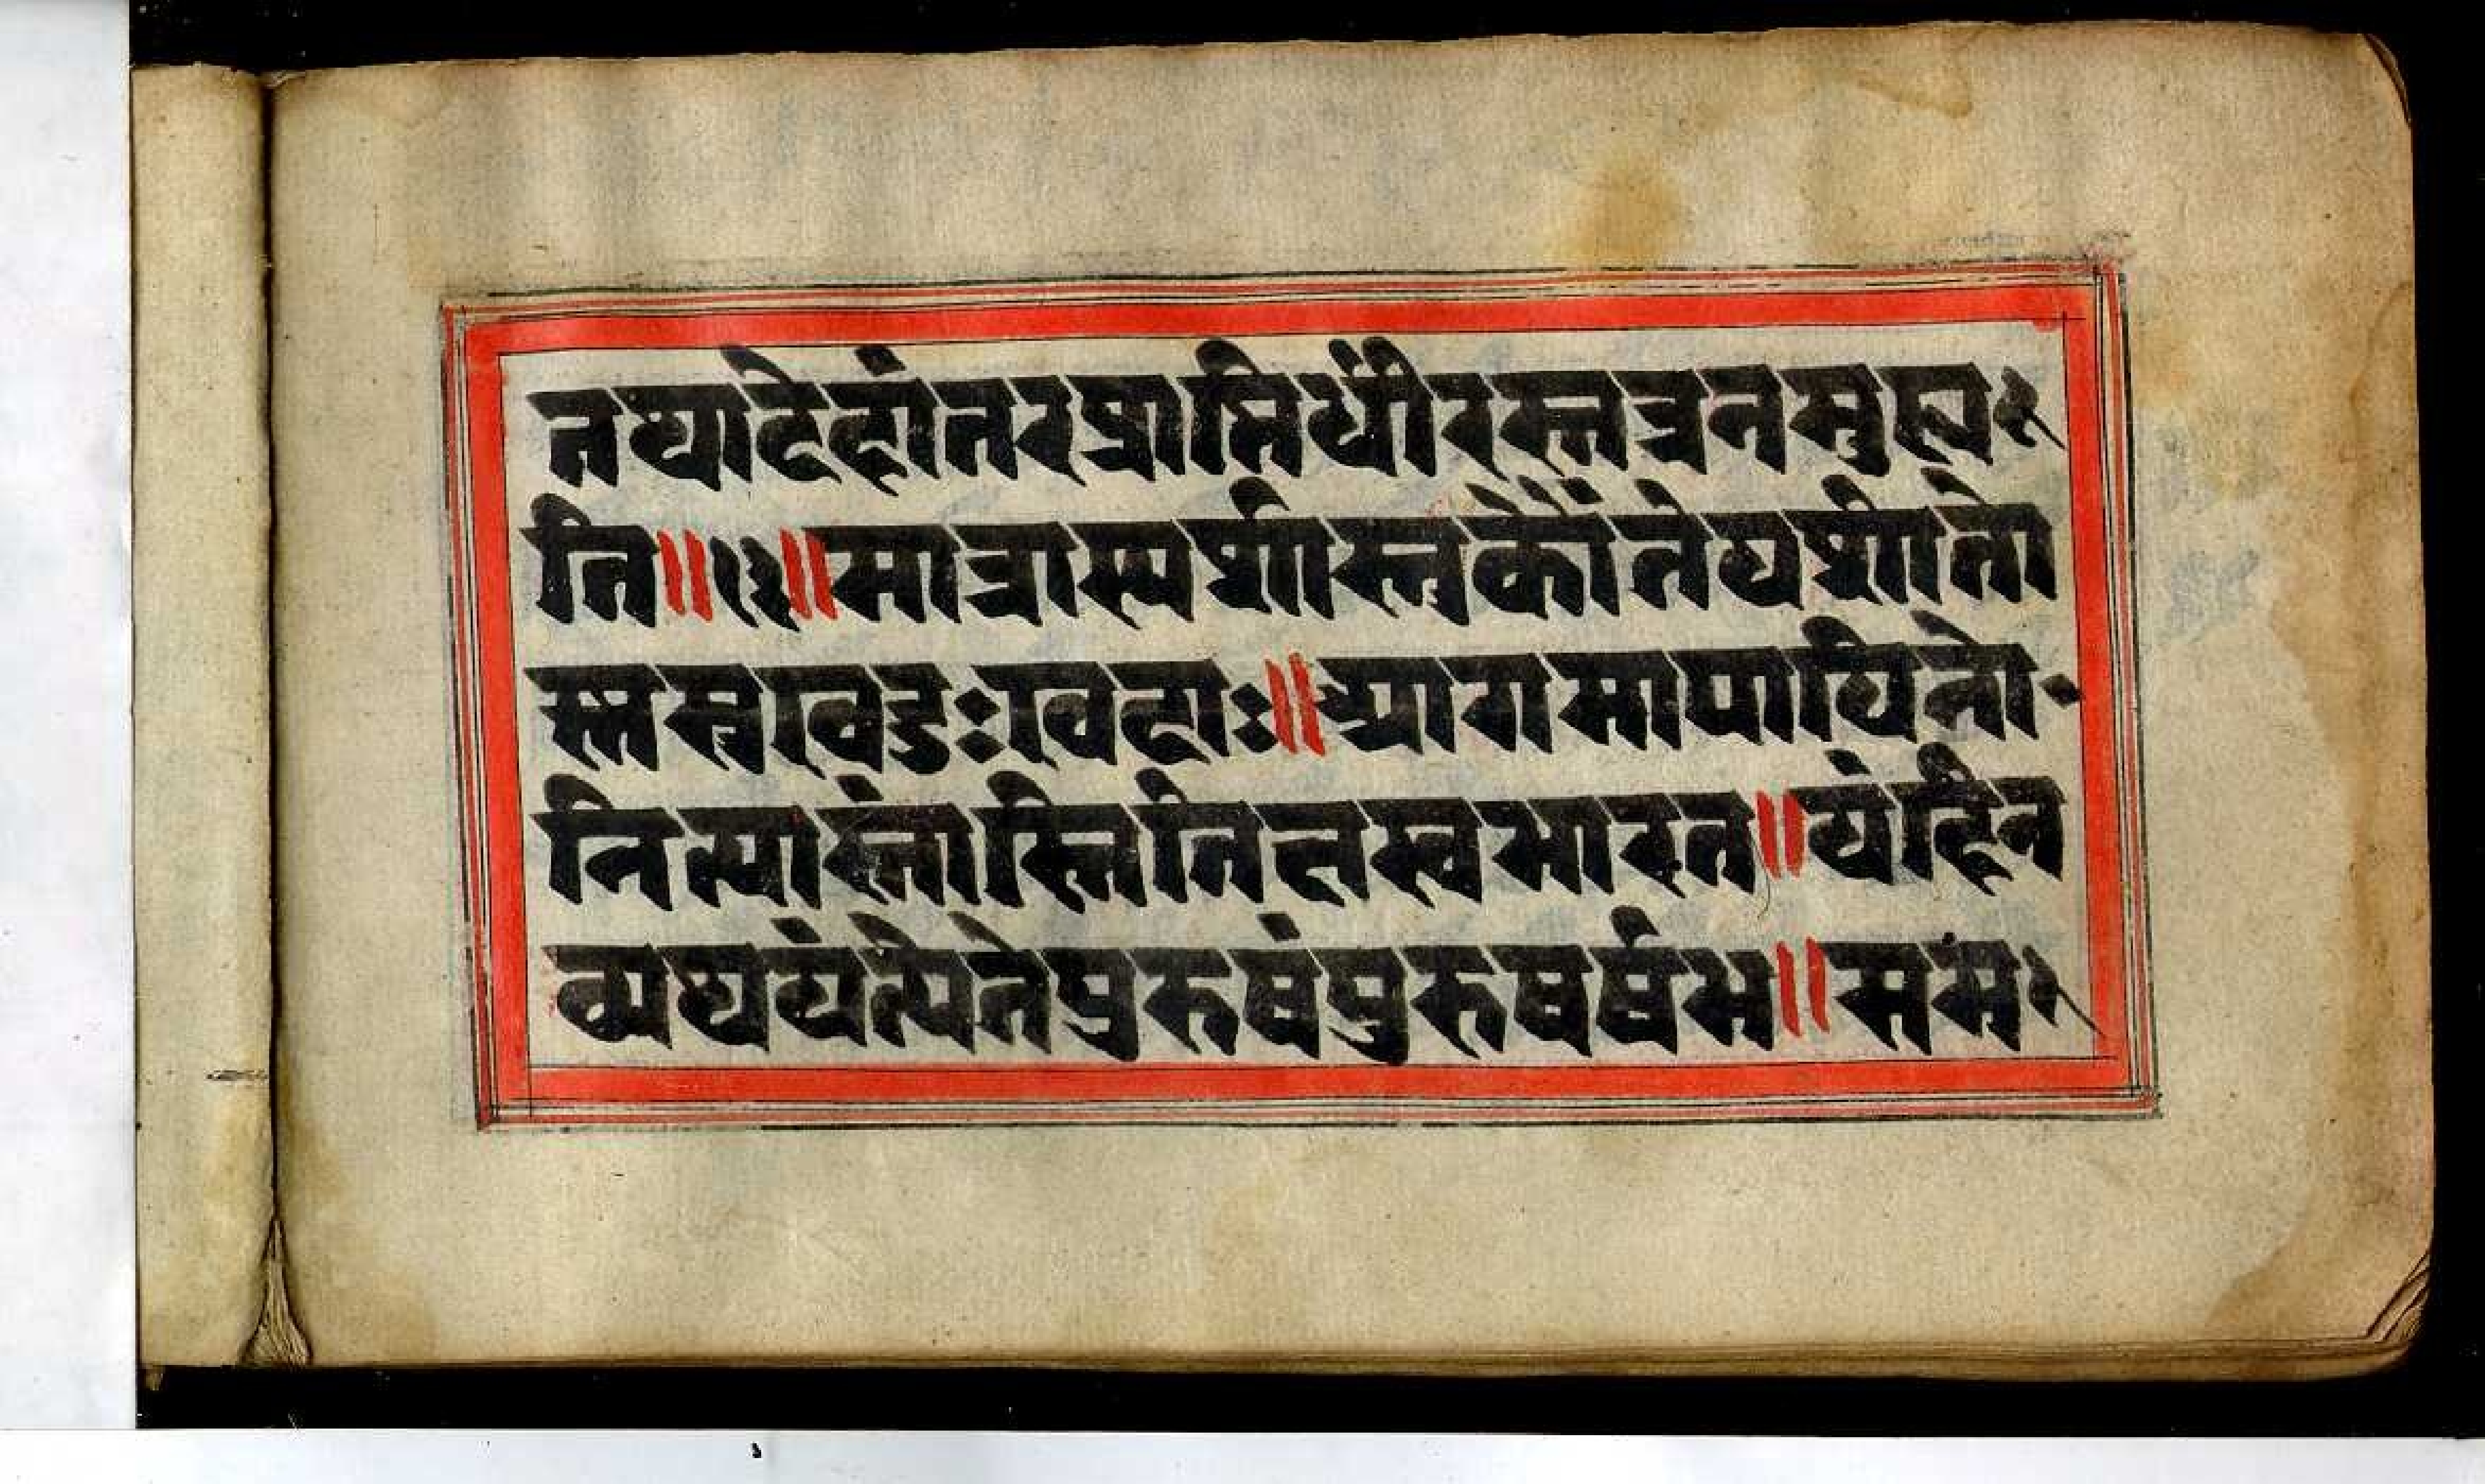 तथादेहांतरप्राप्तिर्धीरस्तत्रनमुह्य
ति॥१३॥मात्रास्पर्शास्तुकौंतेयशीतो
स्नसुखदुःखदाः॥आगमापायिनो
नित्यांस्तांस्तितितत्तस्वभारत॥यंहिन
व्यथयंत्येतेपुरुषंपुरुषर्षभ॥समं